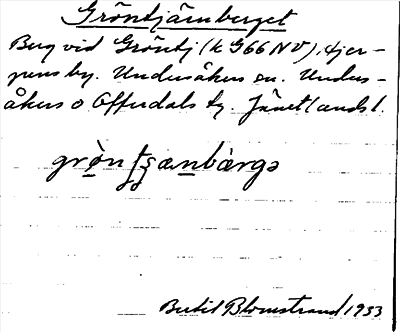 Gröntjärnberget
Berg vid Gröntj. (k G66 NV), Hjer-
pens by. Undersåkers sn. Unders-
åkers o Offerdals tg. Jämtlands l.
Bertil Blomstrand 1933